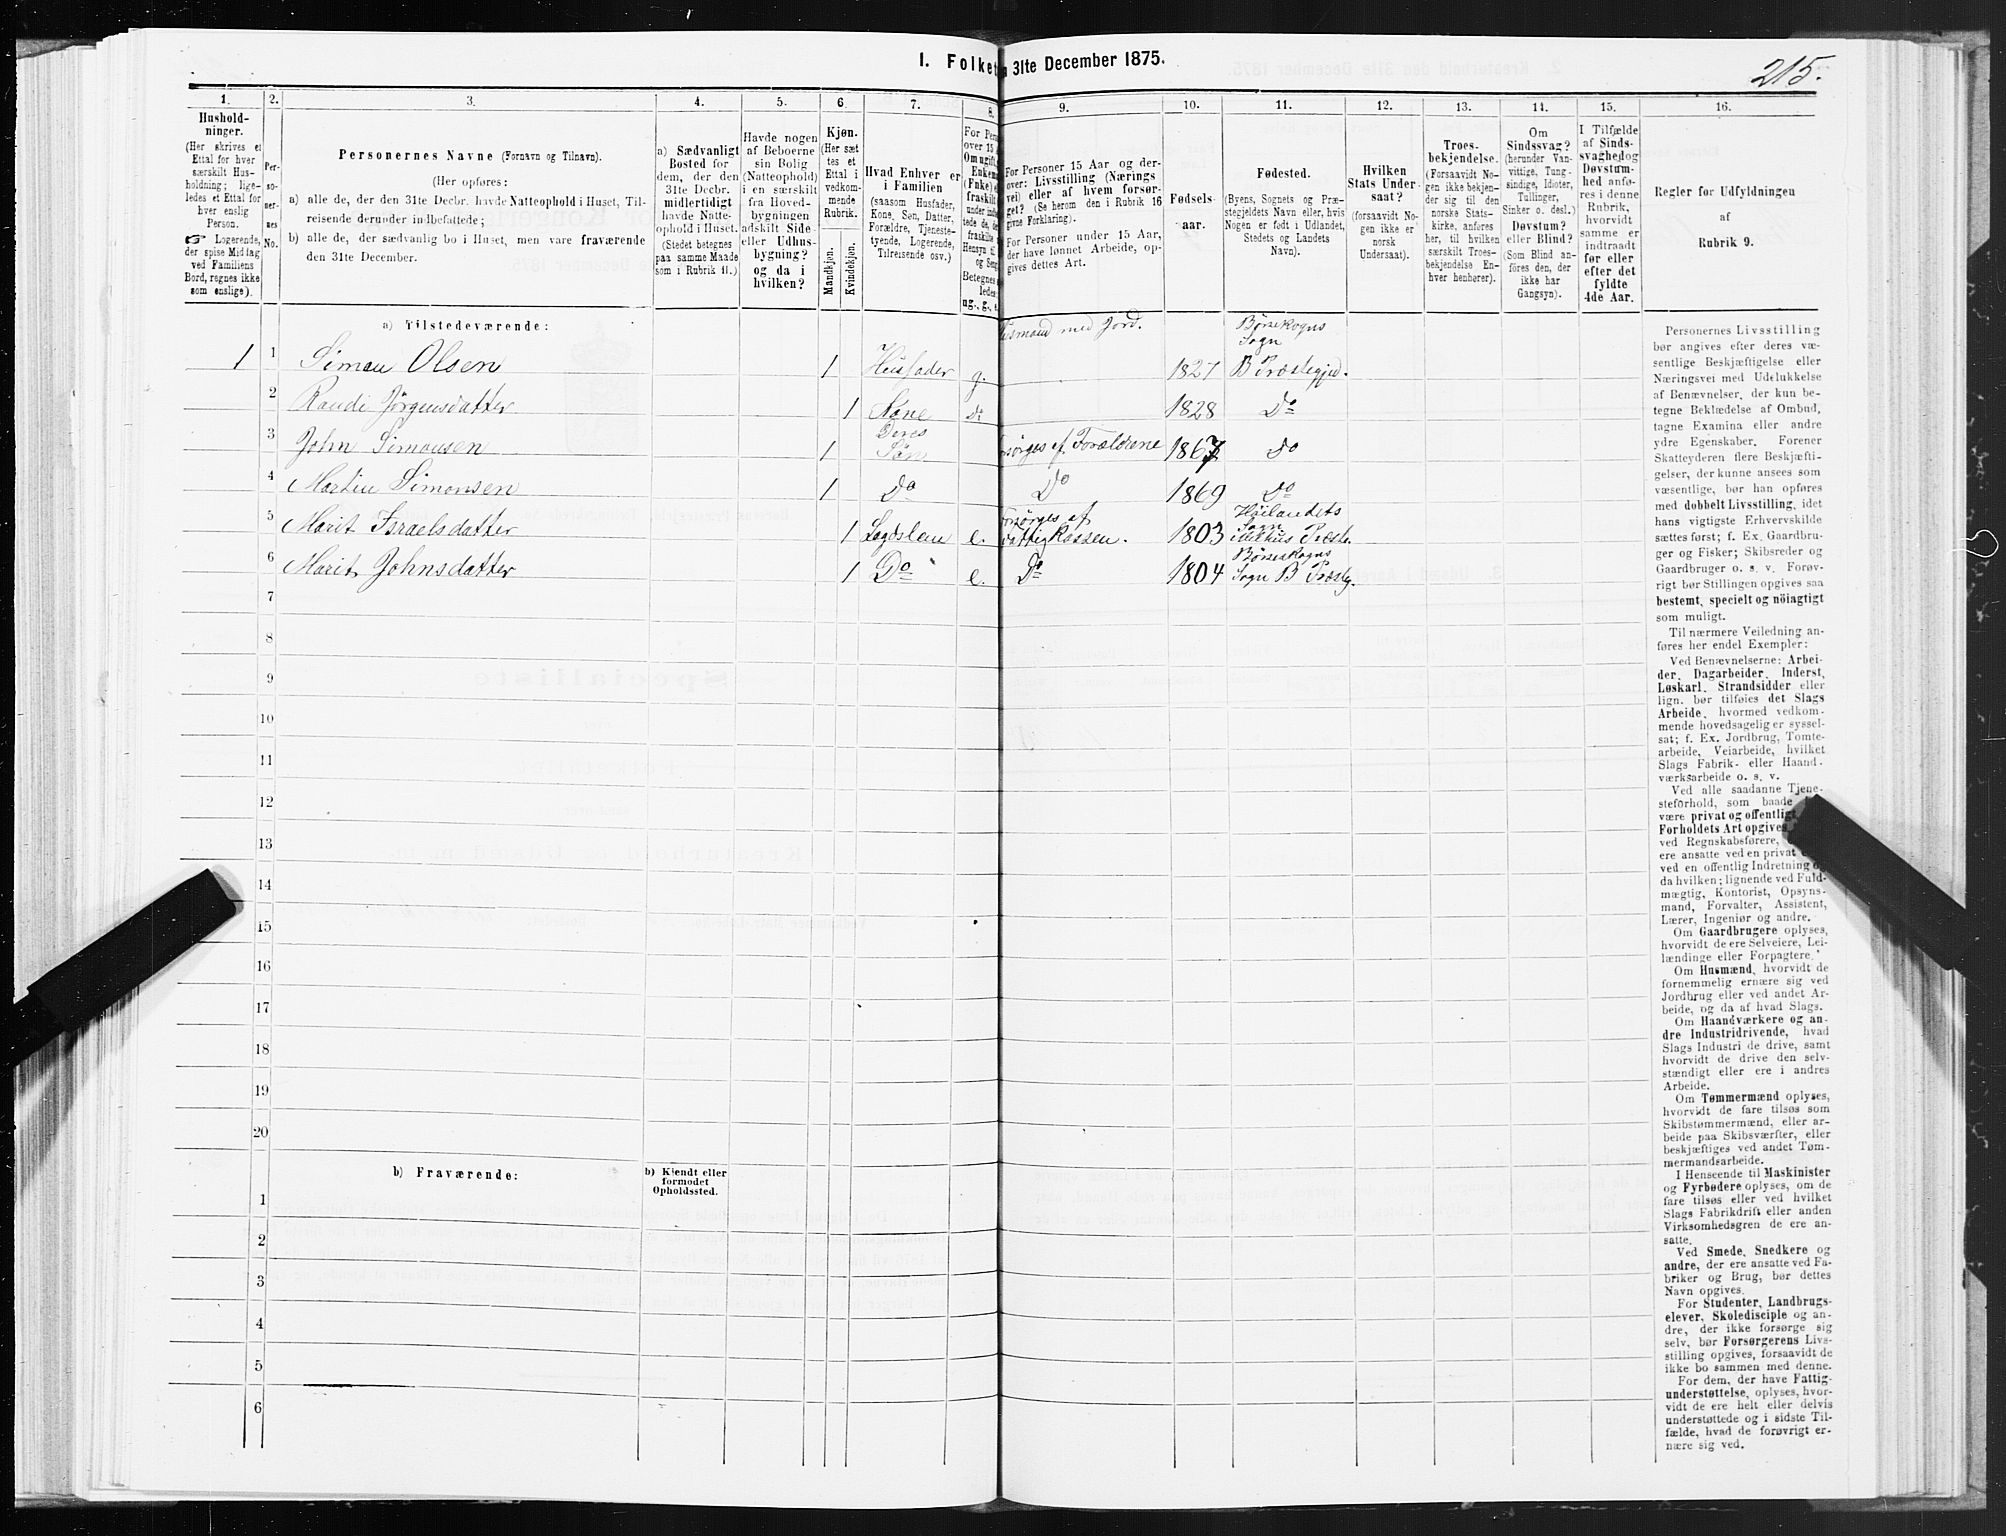 215.
1. Folket
n 31te December 1875.
1. 2. 3. 4. 5. 6 7. 8.
9. 10. 11. 12. 13. 14. 15. 16.
Hushold-
ninger.
(Her skrives et
Ettal for hver
særskilt Hus-
holdning; lige-
ledes et Ettal for
hver enslig
Person.
☞ Logerende,
der spise Middag
ved Familiens
Bord, regnes ikke
som enslige).
Per-
so-
ner-
nes
No.
Personernes Navne (Fornavn og Tilnavn).
(Her opføres:
a) alle de, der den 31te Decbr. havde Natteophold i Huset, Til-
reisende derunder indbefattede;
b) alle de, der sædvanlig bo i Huset, men vare fraværende
den 31te December.
a) Sædvanligt
Bosted for
dem, der den
31te Decbr.
midlertidigt
havde Natte-
ophold i Huset.
(Stedet betegnes
paa samme Maade
som i Rubrik 11.)
Havde nogen
af Beboerne
sin Bolig
(Natteophold)
i en særskilt
fra Hoved-
bygningen
adskilt Side-
eller Udhus-
bygning?
og da i
hvilken?
Kjøn.
(Her sæt
tes et
Ettal i
vedkom-
mende
Rubrik.
Mandkjøn.
Kvindekjøn.
Hvad Enhver er
i Familien
(saasom Husfader,
Kone, Søn, Datter,
Forældre, Tjeneste-
tyende, Logerende,
Tilreisende osv.)
For Pers
over 15 A
Om ugift,
Enkem
(Fnke) e
fraskilt
under ind
tede de, d
fraskilte
Hensyn ti
og Seng
Betegnes
ledes
ug., g., e.
For Personer 15 Aar og der-
over: Livsstilling (Nærings
vei) eller af hvem forsør-
get? (Se herom den i Rubrik 16
givne Forklaring).
For Personer under 15 Aar,
der have lønnet Arbeide, op-
gives dettes Art.
Fødsels-
aar.
Fødested.
(Byens, Sognets og Præ-
stegjeldets Navn eller, hvis
Nogen er født i Udlandet,
Stedets og Landets
Navn).
Hvilken
Stats Under-
saat?
(forsaavidt No-
gen ikke er
norsk
Undersaat).
Troes-
bekjendelse.
(Forsaavidt No-
gen ikke bekjen-
der sig til den
norske Stats-
kirke, anføres
her, til hvilken
særskilt Troes-
bekjendelse En-
hver henhører).
Om
Sindssvag?
(herunder Van-
vittige, Tung-
sindige, Idioter,
Tullinger,
Sinker o. desl.)
Døvstum?
eller Blind?
(Som Blind an-
føres den, der
ikke har
Gangsyn).
I Tilfælde
af Sinds-
svaghed og
Døvstum-
hed anfø-
res i denne
Rubrik,
hvorvidt
samme er
indtraadt
før eller
efter det
fyldte
4de Aar.
Regler for Udfyldningen
af
Rubrik 9.
a) Tilstedeværende:
1 1 Simon Olsen 1 Husfader g. Husmand med Jord. 1827 Børseskogns Sogn B Præstegjed.
2 Randi Jørgensdatter 1 Kone Do 1828 Do
3 John Simonsen 1 Deres Søn Forsørges af Forældrene 1867 Do
4 Martin Simonsen 1 Do Do 1869 Do
5 Marit Israelsdatter 1 Lægdslem e. Forsørges af Fattigkassen. 1803 Høilandets Sogn Præste.
6 Marit Johnsdatter 1 Do e. Do 1804 Børseskogns Sogn B Præstg.
7
8
9
10
11
12
13
14
15
16
17
18
19
20
b) Fraværende:
b) Kjendt eller
formodet
Opholdssted.
1
2
3
4
5
6
Personernes Livsstilling
bør angives efter deres væ-
sentlige Beskjæftigelse eller
Næringsvei med Udelukkelse
af Benævnelser, der kun be-
tegne Beklædelse af Ombud,
tagne Examina eller andre
ydre Egenskaber. Forener
Skatteyderen flere Beskjæfti-
gelser, der kunne ansees som
væsentlige, bør han opføres
med dobbelt Livsstilling, idet
hans vigtigste Erhvervskilde
sættes først; f. Ex. Gaardbru-
ger og Fisker; Skibsreder og
Gaardbruger o. s. v. Forøv-
rigt bør Stillingen opgives saa
bestemt, specielt og nøiagtigt
som muligt.
Til nærmere Veiledning an-
føres her endel Exempler:
Ved Benævnelserne: Arbei-
der, Dagarbeider, Inderst,
Løskarl, Strandsidder eller
lign. bør tilføies det Slags
Arbeide, hvormed vedkom-
mende hovedsagelig er syssel-
sat; f. Ex. Jordbrug, Tomte-
arbeide, Veiarbeide, hvilket
Slags Fabrik- eller Haand-
værksarbeide o. s. v.
Ved alle saadanne Tjene-
steforhold, som baade
være privat og offentligt
Forholdets Art opgives,
ved Regnskabsførere,
ere ansatte ved en privat
ved en offentlig Indretning
da hvilken; lignende ved Fuld-
mægtig, Kontorist, Opsyns-
mand, Forvalter, Assistent,
Lærer, Ingeniør og andre.
Om Gaardbrugere oplyses,
hvorvidt de ere Selveiere, Lei-
lændinge eller Forpagtere.
Om Husmænd, hvorvidt de
fornemmelig ernære sig ved
Jordbrug eller ved andet Ar-
beide, og da af hvad Slags.
Om Haandværkere og an-
dre Industridrivende, hvad
Slags Industri de drive, samt
hvorvidt de drive den selv-
stændigt eller ere i andres
Arbeide.
Om Tømmermænd oplyses,
hvorvidt de fare tilsøs som
Skibstømmermænd, eller ar-
beide paa Skibsværfter, eller
beskjæftiges ved andet Tøm-
mermandsarbeide.
I Henseende til Maskinister
og Fyrbødere oplyses, om de
fare tilsøs eller ved hvilket
Slags Fabrikdrift eller anden
Virksomhedsgren de ere an-
satte.
Ved Smede, Snedkere og
andre, der ere ansatte ved Fa-
briker og Brug, bør dettes
Navn opgives.
For Studenter, Landbrugs-
elever, Skoledisciple og an-
dre, der ikke forsørge sig
selv, bør Forsørgerens Livs-
stilling opgives, forsaavidt de
ikke bo sammen med denne.
For dem, der have Fattig-
understøttelse, oplyses, hvor-
vidt de ere helt eller delvis
understøttede og i sidste Til-
fælde, hvad de forøvrigt er-
nære sig ved.